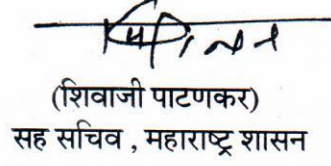 (शिवाजी पाटणकर)
सह सचिव , महाराष्ट्र शासन